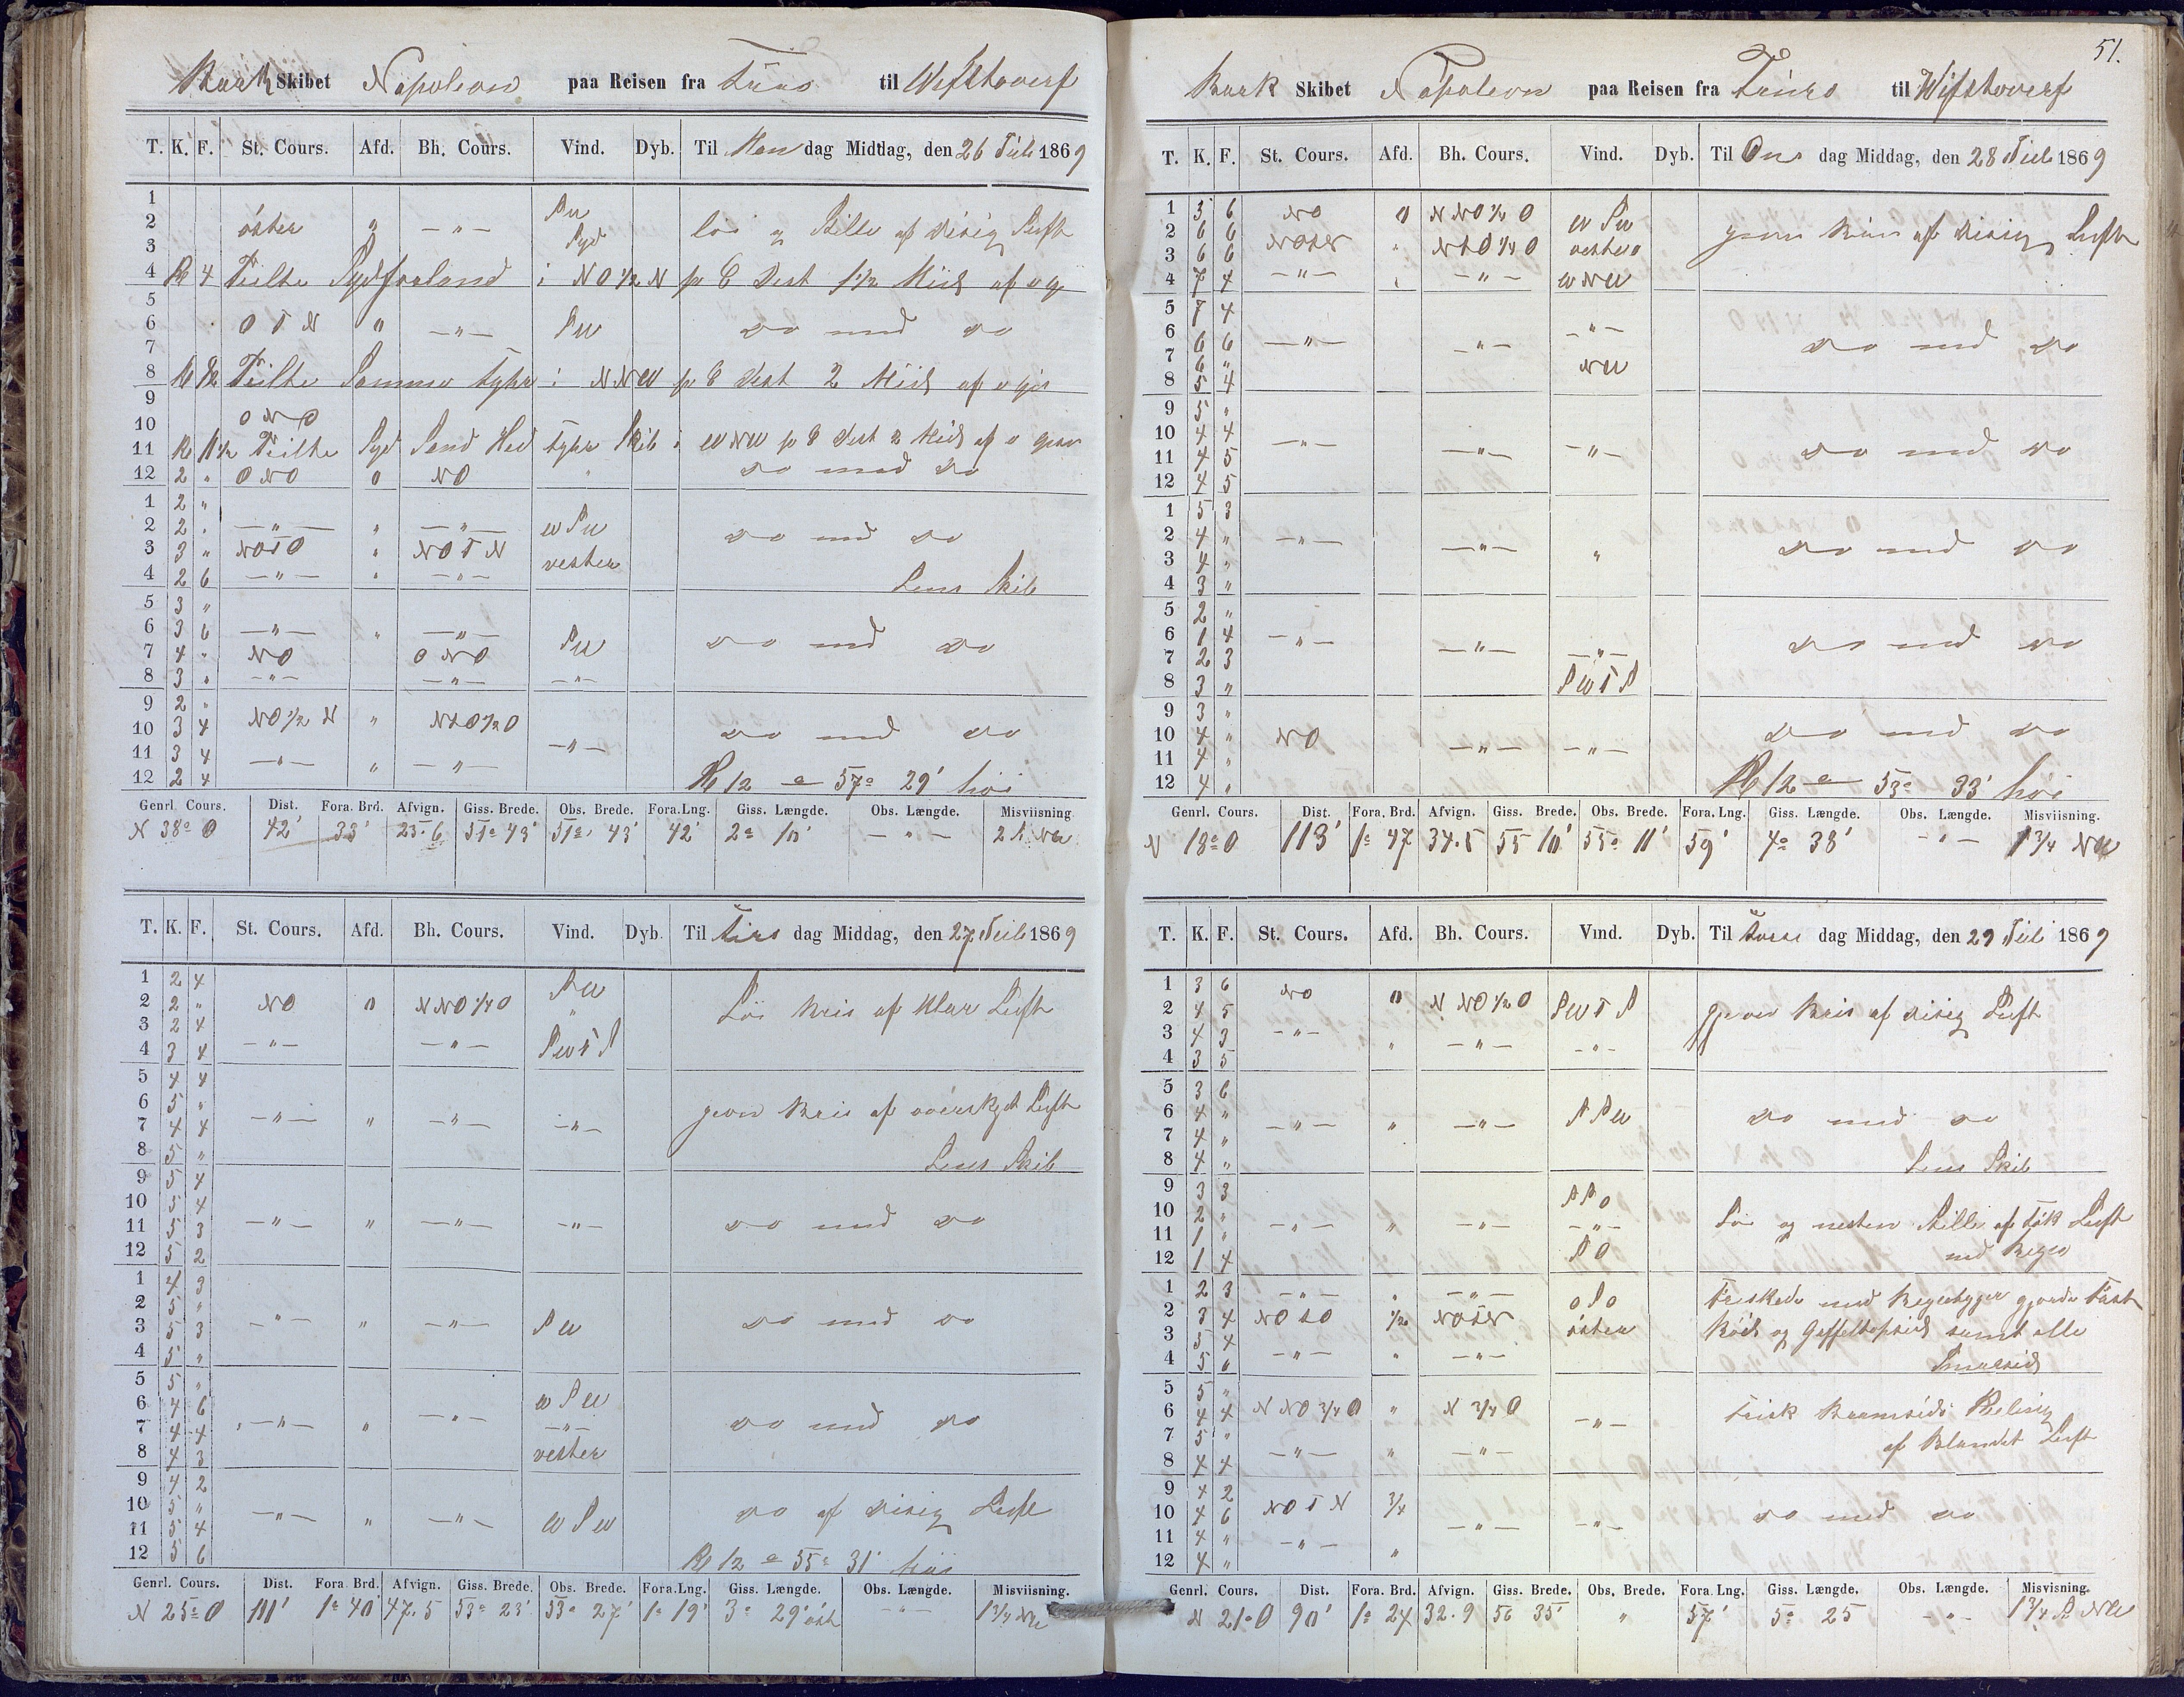 Bark Skibet Napoleon paa Reisen fra til Wifstawerf
T. K. F. St. Cours. Afd. Bh. Cours. Vind. Dyb. Til Man dag Middag, den 26 Juli 1869
1 SW
2 öster " — " — Syd og Stille af disig Luft
3
4 Kl 4 Peilte Sydforland i NO 1/2 N pr C Dist 1 1/2 Miil af
5
6 O t N " — " — SW do med do
7
8 Kl 8 Peilte Samme i NNW pr C Dist 2 Miil af
9
10 ONO
11 Kl 11 1/2 Peilte Syd Sand Hed Skib i WNW pr C Dist 2 Miil af
12 2 " ONO 0 NO " do med do
1 2 "
2 2 " — " — " — " — WSW do med do
3 3 " NOtO " NOtN vester
4 2 6 — " — " — " — Lens Skib
5 3 "
6 3 6 — " — " — " — SW do med do
7 4 " NO ONO
8 3 " — " — — " — — " —
9 2 "
10 3 4 NO 1/2 N " NtO 1/2 O — " — do med do
11 3 4 — " — " — " —
12 2 4 Kl 12 e 57° 29'
Genrl. Cours. Dist. Fora. Brd. Afvign. Giss. Brede. Obs. Brede. Fora. Lng. Giss. Længde. Obs. Længde. Misviisning.
N 38° O 42' 33' 25.6 51° 43' 51° 43' 42' 2° 10' — " — 2 S. NW
T. K. F. St. Cours. Afd. Bh. Cours. Vind. Dyb. Til Tirs dag Middag, den 27 Juli 1869
1 2 4 SW
2 2 " NO 0 NNO 1/4 O " Kris af Klar Luft
3 2 4
4 3 4 — " — — " — SWtS
5 4 4
6 5 " jevn Kris af overskyet Luft
7 4 4 — " — " — " — — " —
8 5 " Lens Skib
9 5 4
10 5 4
11 5 3 — " — " — " — — " — do med do
12 5 2
1 4 3
2 5 "
3 5 3 — " — " — " — SW do med do
4 5 "
5 5 "
6 4 6 WSW
7 4 4 — " — " — " — — " — do med do
8 4 3 vester
9 4 2
10 5 " do af disig Luft
11 5 4 — " — " — " — WSW
12 5 6 Kl 12 e 55° 31'
Genrl. Cours. Dist. Fora. Brd. Afvign. Giss. Brede. Obs. Brede. Fora. Lng. Giss. Længde. Obs. Længde. Misviisning.
N 25° O 111' 1° 40' 47.5 53° 23' 53° 27' 1° 19' 3° 29' öst — " — 1 3/4 NW
51.
Bark Skibet Napoleon paa Reisen fra til Wifstawerf
T. K. F. St. Cours. Afd. Bh. Cours. Vind. Dyb. Til Ons dag Middag, den 28 Juli 1869
1 3 6 NO 0 NNO 1/2 O WSW
2 6 6 NOtN " NtO 1/4 O vester jevn Kris af disig Luft
3 6 6
4 7 4 — " — " — " — WNW
5 7 4
6 — " —
7 6 6 — " — — " — do med do
6 " NW
8 5 4
9 5 "
10 4 4 — " — — " — — " — do med do
11 4 5
12 4 5
1 5 3
2 4 " — " — — " — " do med do
3 4 "
4 3 "
5 2 "
6 1 4 — " — — " — — " — do med do
7 2 3
8 3 " SWtS
9 3 "
10 4 " NO — " — — " — do med do
11 4 "
12 4 " Kl 12 e 53° 33'
Genrl. Cours. Dist. Fora. Brd. Afvign. Giss. Brede. Obs. Brede. Fora. Lng. Giss. Længde. Obs. Længde. Misviisning.
N 18° O 113' 1° 47 34.5 55 10' 55° 11' 59' 4° 38' — " — 1 3/4 NW
T. K. F. St. Cours. Afd. Bh. Cours. Vind. Dyb. Til Tors dag Middag, den 29 Juli 1869
1 3 6 NO 0 NNO 1/2 O SWtS
2 4 5 jevn Kris af disig Luft
3 4 3 — " — " — " — — " —
4 3 5
5 3 6
6 4 " — " — " — " — SSW do med do
7 4 "
8 4 " Lens Skib
9 3 3 SSO
10 2 " — " — " — " — — " — og nesten Stille af tök Luft
11 1 "
12 1 4 SO med Regn
1 2 3 — " — " — " — OSO Friskede med Regnbyger gjorde fast
2 3 4 NOtO 1/2 NOtN öster Röil og Gaffeltopseil samt alle
3 5 4
4 5 6 — " — " — " — Smaaseil
5 5 "
6 4 4 NNO 3/4 O " N 3/4 O — " — Frisk Bramseils Kuling
7 5 "
8 4 4 — " — " — " — af Blandet Luft
9 4 2
10 4 6 NOtN 3/4 — " — — " — do med do
11 4 " — " — "
12 4 "
Genrl. Cours. Dist. Fora. Brd. Afvign. Giss. Brede. Obs. Brede. Fora. Lng. Giss. Længde. Obs. Længde. Misvisning.
N 21° O 90' 1° 24 32.9 56 35' " 57' 5° 25 — " — 1 3/4 S. NW